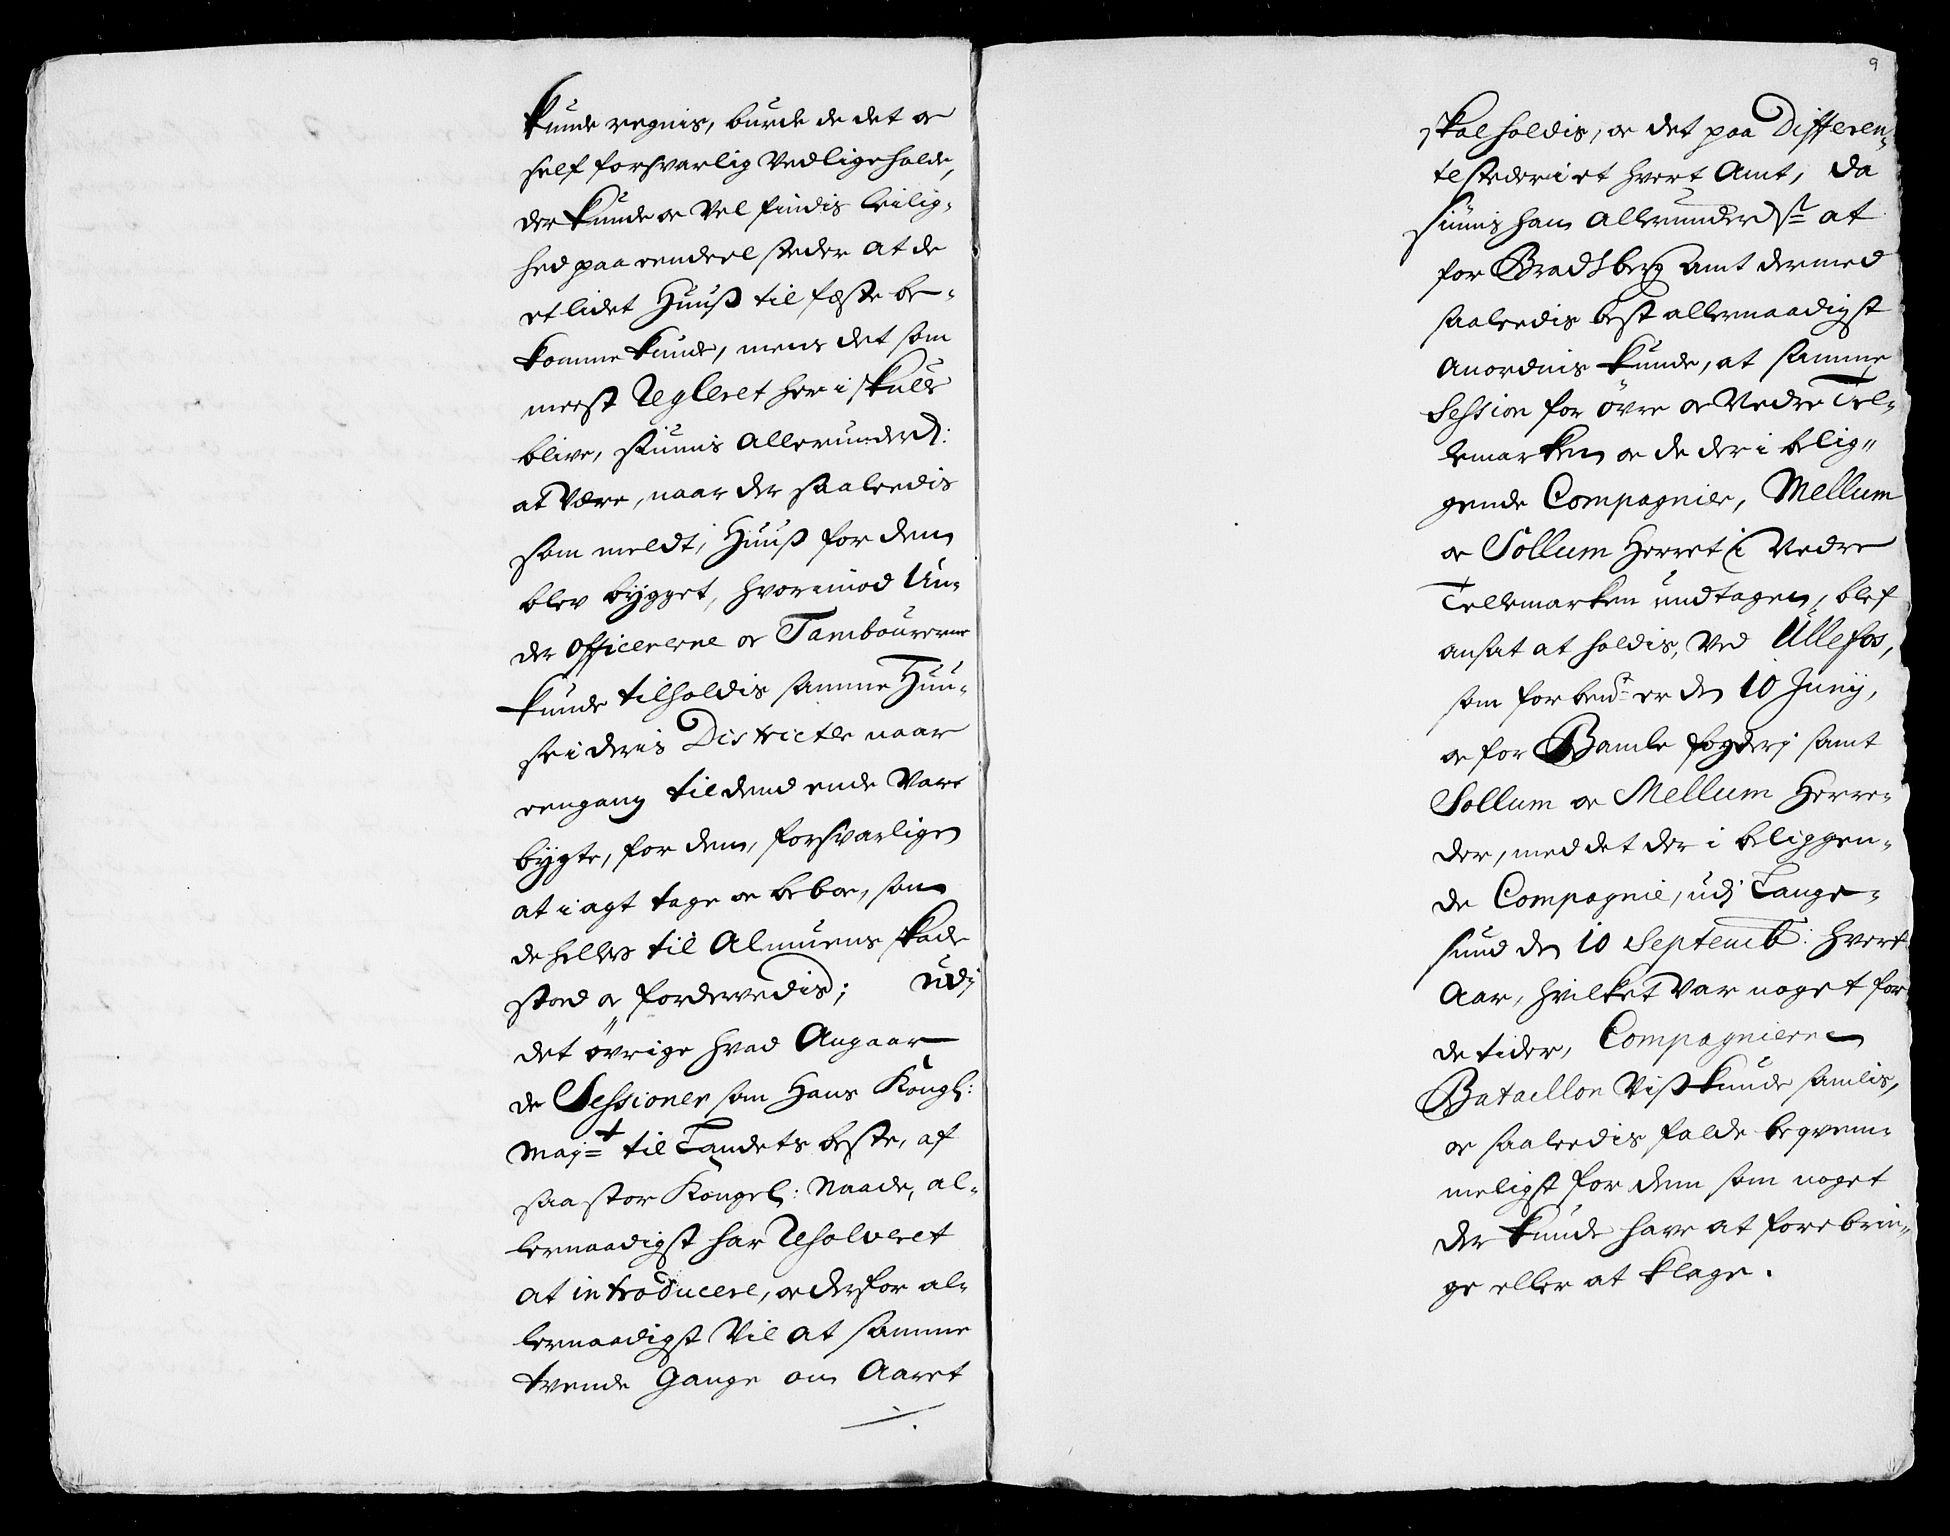 kunde regnis, burde de det oc
self forsvarlig Vedligeholde,
der kunde oc Vel findis leilig-
hed paa eendeel steder at de
et lidet Huuß til fæste be-
komme kunde, mens det som
meest Regleret her i skulle
blive, siunis allerunderd:
at Være, naar der saaleedis
som meldt, Huuß for dem
blev bygget, hvorimod Un-
der Officererne oc Tambourerne
kunde tilholdis samme Huu-
se i deris Districter naar
eengang til dend ende Vare
bygte, for dem, forsvarligen
at i agt tage oc beboe, som
de hellers til Almuens skade
stoed oc forderwedis; udj
det øvrige hvad Angaar
de Sessioner som Hans Kongl:
Maj=t til Landets beste, af
saa stor Kongel: Naade, al-
lernaadigst har Resolveret
at introducere, oc derfor al-
lernaadigst Vil at samme
tvende Gange om Aaret
./.
9
skal holdis, oc det paa Differen-
te steder i et hvert Amt, da
siunis ham allerunderd=st at
for Bradsberg Amt dermed
saaleedis best allernaadigst
Anordnis kunde, at samme
Session for øvre oc Nedre Tel-
lemarken oc de der i belig-
gende Compagnier, Mellum
oc Sollum Herret i Nedre
Tellemarken undtagen, blef
ansat at holdis, Ved Ullefos,
som for bem=te er den 10 Junij,
oc for Bamle fogderj samt
Sollum oc Mellum Herre-
der, med det der i beliggen-
de Compagnie, udj Lange-
sund den 10 Septemb: hvert
Aar, hvilket Var noget for
de tider, Compagnierne
Bataillon Viß kunde samlis,
oc saaleedis falde beqvem-
meligst for dem som noget
der kunde have at forebrin-
ge eller at klage.